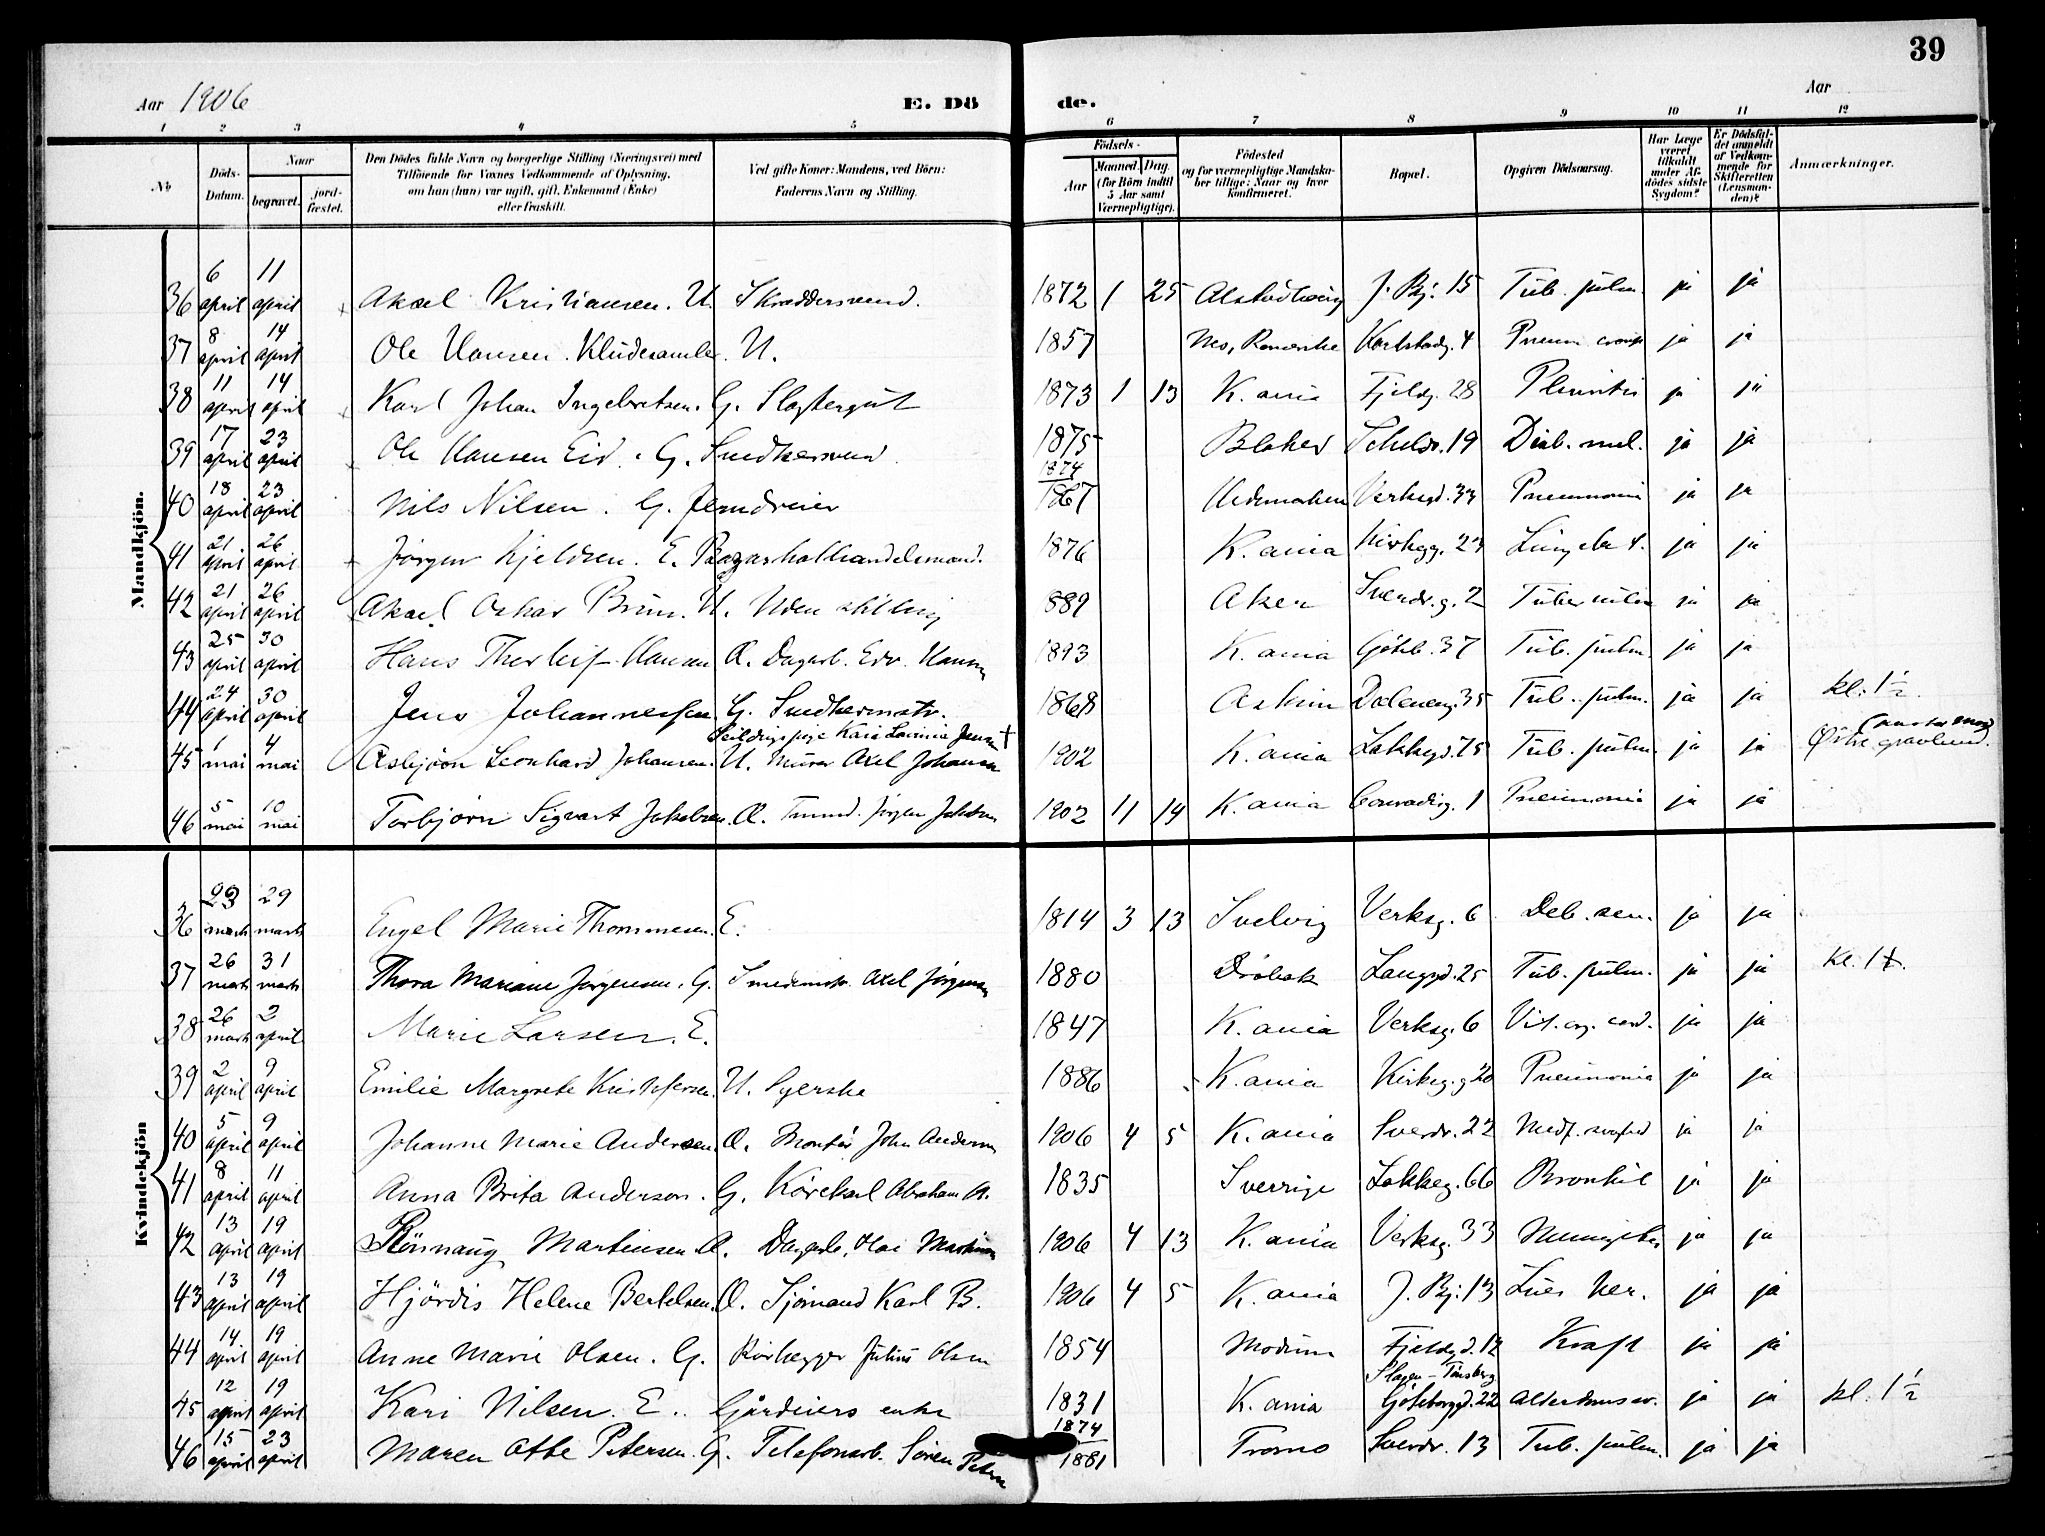 39
Aar 1906 E. Dö de. Aar
1 2 3 4 5 6 7 8 9 10 11 12
No Döds-Datum. Naar begravet. jord-fæstet. Den Dödes fulde Navn og borgerlige Stilling (Næringsvei) med Tilföiende for Voxnes Vedkommende af Oplysning, om han (hun) var ugift, gift, Enkemand (Enke) eller fraskilt. Ved gifte Koner: Mandens, ved Börn: Faderens Navn og Stilling. Födsels- Aar Maaned. Dag. (for Börn indtil 5 Aar samt Værnepligtige). Födested og for værnepligtige Mandskaber tillige: Naar og hvor Konfirmeret. Bopæl. Opgiven Dödsaarsag. Har Læge været tilkaldt under Afdödes sidste Sygdom? Er Dödsfaldet anmeldt af Vedkommende for Skifteretten (Lensmanden)? Anmærkninger.
Mandkjön.
36 6 april 11 april Aksel Kristiansen. U. Skræddersvend. 1872 1 25 J. Bj. 15 Tub. pulm. ja ja
37 8 april 14 april Ole Hansen. Kludesamler. U. 1857 Nes, Romerike Karlstadg. 4 Pneum. croup ja ja
38 11 april 14 april Karl Johan Ingebretsen. G. Slagtergut 1873 1 13 K.ania Fjeldg. 28 Pleuritis ja ja
39 17 april 23 april Ole Hansen Eid. G. Snedkersvend. 1875 Blaker 19 Diab. mel. ja ja
40 18 april 23 april Nils Nilsen. G. Jerndreier 1874 1867 Hedemarken Verksgd. 33 Pneumonia ja ja
41 21 april 26 april Jörgen Kjeldsen. E. 1876 K.ania Kirkegg. 23 ja ja
42 21 april 26 april Aksel Oskar Brun. U. Uden stilling 889 Aker Sverdr. g. 2 ja ja
43 25 april 30 april Hans Thorleif Hansen Æ. Dagarb. Edv. Hansen 1893 K.ania Göteb. 37 Tub. pulm. ja ja
44 24 april 30 april Jens Johannessen. G. Snedkermstr. 1868 Askim Daleneng. 35 Tub. pulm. ja ja kl. 1½.
45 1 mai 4 mai Asbjörn Leonhard Johansen. U. Murer Axel Johansen 1902 K.ania Lakkegd. 75 Tub. pulm. ja ja Östre gravlund.
46 5 mai 10 mai Torbjörn Sigvart Jakobsen. Æ. Jörgen Jakobsen 1902 11 14 K.ania Conradig. 1 Pneumonia ja ja
Kvindekjön
36 23 marts 29 marts Engel Marie Thommesen. E. 1814 3 13 Svelvig Verksg. 6 Deb. sen. ja ja
37 26 marts 31 marts Thora Mariane Jörgensen. G. Smedemstr. Axel Jörgensen 1880 Dröbak Langgd. 25 Tub. pulm. ja ja kl. 1½.
38 26 marts 2 april Marie Larsen. E. 1847 K.ania Verksg. 6 Vit. org. cord. ja ja
39 2 april 9 april Emilie Margrete Kristofersen. U. Syerske 1886 K.ania Kirkeg.g 20 Pneumonia ja ja
40 5 april 9 april Johanne Marie Andersen. Æ. John Andersen 1906 4 5 K.ania Sverdr. 22 Medf. svaghed ja ja
41 8 april 11 april Anna Brita Anderson. G. Körekarl Abraham A. 1835 Sverrige Lakkeg. 66 Bronkit ja ja
42 13 april 19 april Rönnaug Martinsen Æ. Dagarb. Olai Martinsen 1906 4 13 K.ania Verksg. 33 ja ja
43 13 april 19 april Hjördis Helene Bertelsen. Æ. Sjömand Karl B. 1906 4 5 K.ania J. Bj. 13 Lues her. ja ja
44 14. april 19 april Anne Marie Olsen. G. Rörlegger Julius Olsen 1854 Modum Fjeldgd. 12 Kræft ja ja
45 12 april 19 april Kari Nilsen. E. Gårdeiers enke 1831 K.ania Slagen - Tönsberg Göteborggd. 22 ja ja kl. 1½
46 15 april 23 april Maren Otte Petersen. G. Telefonarb. Sören Petersen 1874 1881 Tromö Sverdr. 13 Tub. pulm. ja ja